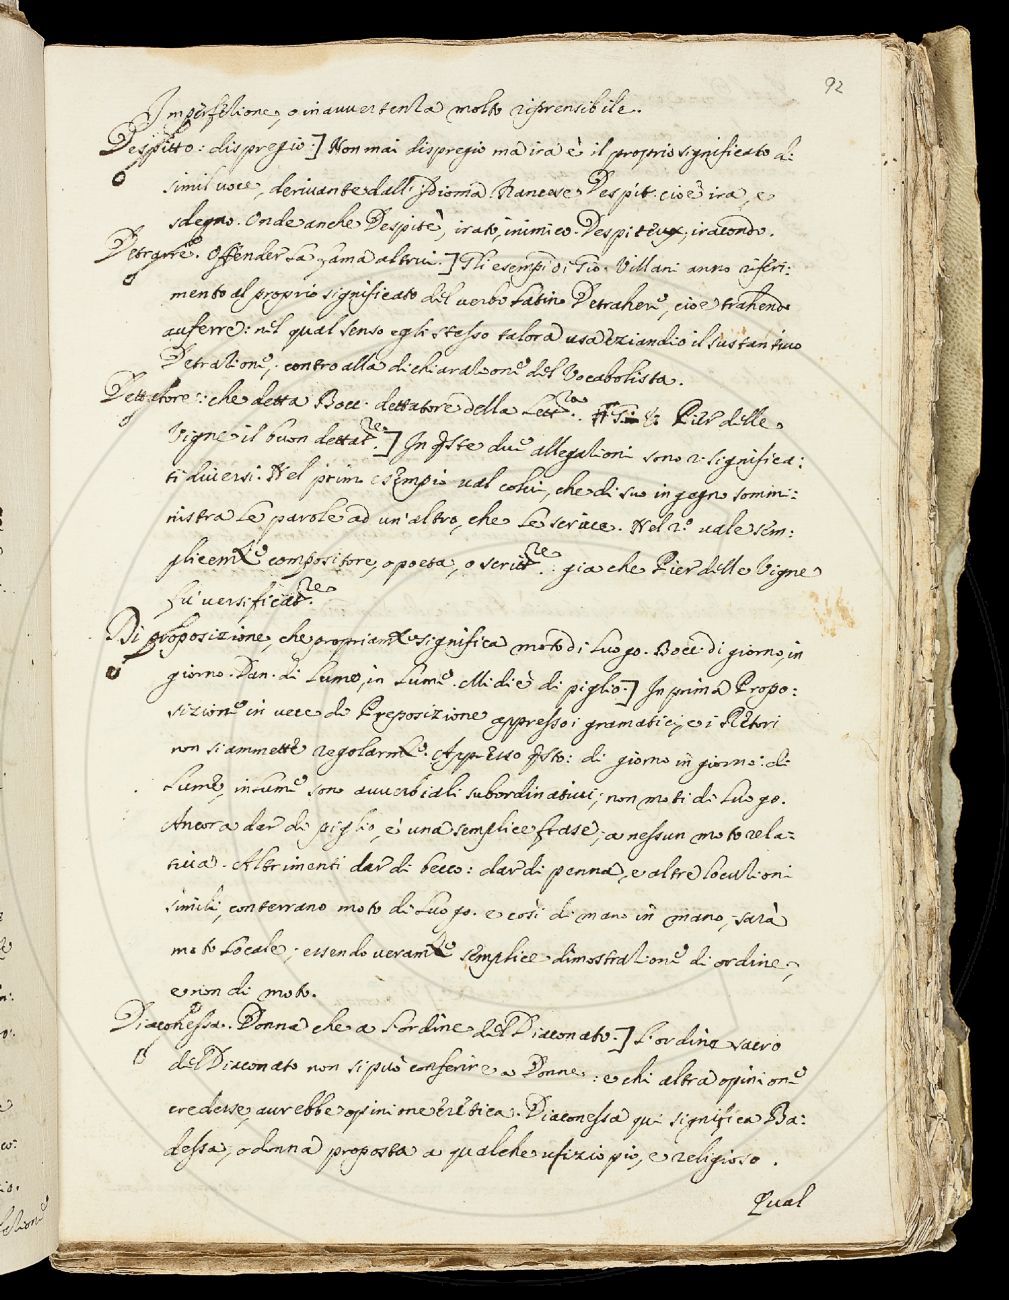 92
Imperfezione, o inavvertenza molto riprensibile.
Despitto: dispregio.] Non mai dispregio ma ira è il proprio significato di
simil voce, derivante dall'Idioma Francese Despit. cioè ira, e
sdegno. Onde anche Despitè, irato, inimico Despiteux, iracondo.
Detrarre. Offender la fama altrui.] Gli esempi di Gio. Villani anno riferi:
mento al proprio significato del verbo Latino Detrahere, cioè trahendo
auferre: nel qual senso egli stesso talora usa eziandio il sustantivo
Detrazione, contro alla dichiarazione del Vocabolista.
Dettatore: che detta Bocc. dettatore della Lettra. Pier delle
Vigne il buon dettatre.] In qste due allegazioni sono 2 significa:
ti diversi. Nel primo esempio val colui, che di suo ingegno sommi:
nistra le parole ad un'altro, che le scrive. Nel 2o vale sem:
plicemte compositore, o poeta, o scrittre: gia che Pier delle Vigne
fù versificatre.
Di proposizione, che propriamte significa moto di Luogo. Bocc. di giorno, in
giorno. Dan. di Lume, in Lume. Mi diè di piglio.] In prima Propo:
sizione in vece di Preposizione appresso i gramatici, e i Retori
non si ammette regolarmte. Appresso qsto: di giorno in giorno: di
Lume, in Lume sono avverbiali subordinativi; non moti di Luogo.
Ancora dar di piglio, è una semplice frase, a nessun moto rela-
tiva. Altrimenti dar di becco: dar di penna, e altre locuzioni
simili, conterrano moto di Luogo. e così di mano in mano, sarà
moto Locale; essendo veramte semplice dimostrazione di ordine,
e non di moto.
Diaconessa. Donna che a l'ordine del Diaconato.] L'ordine sacro
del Diaconato non si può conferire a Donne: e chi altra opinione
credesse, avrebbe opinione eretica. Diaconessa qui significa Ba:
dessa, o donna proposta a qualche ufizio pio, e religioso.
Qual